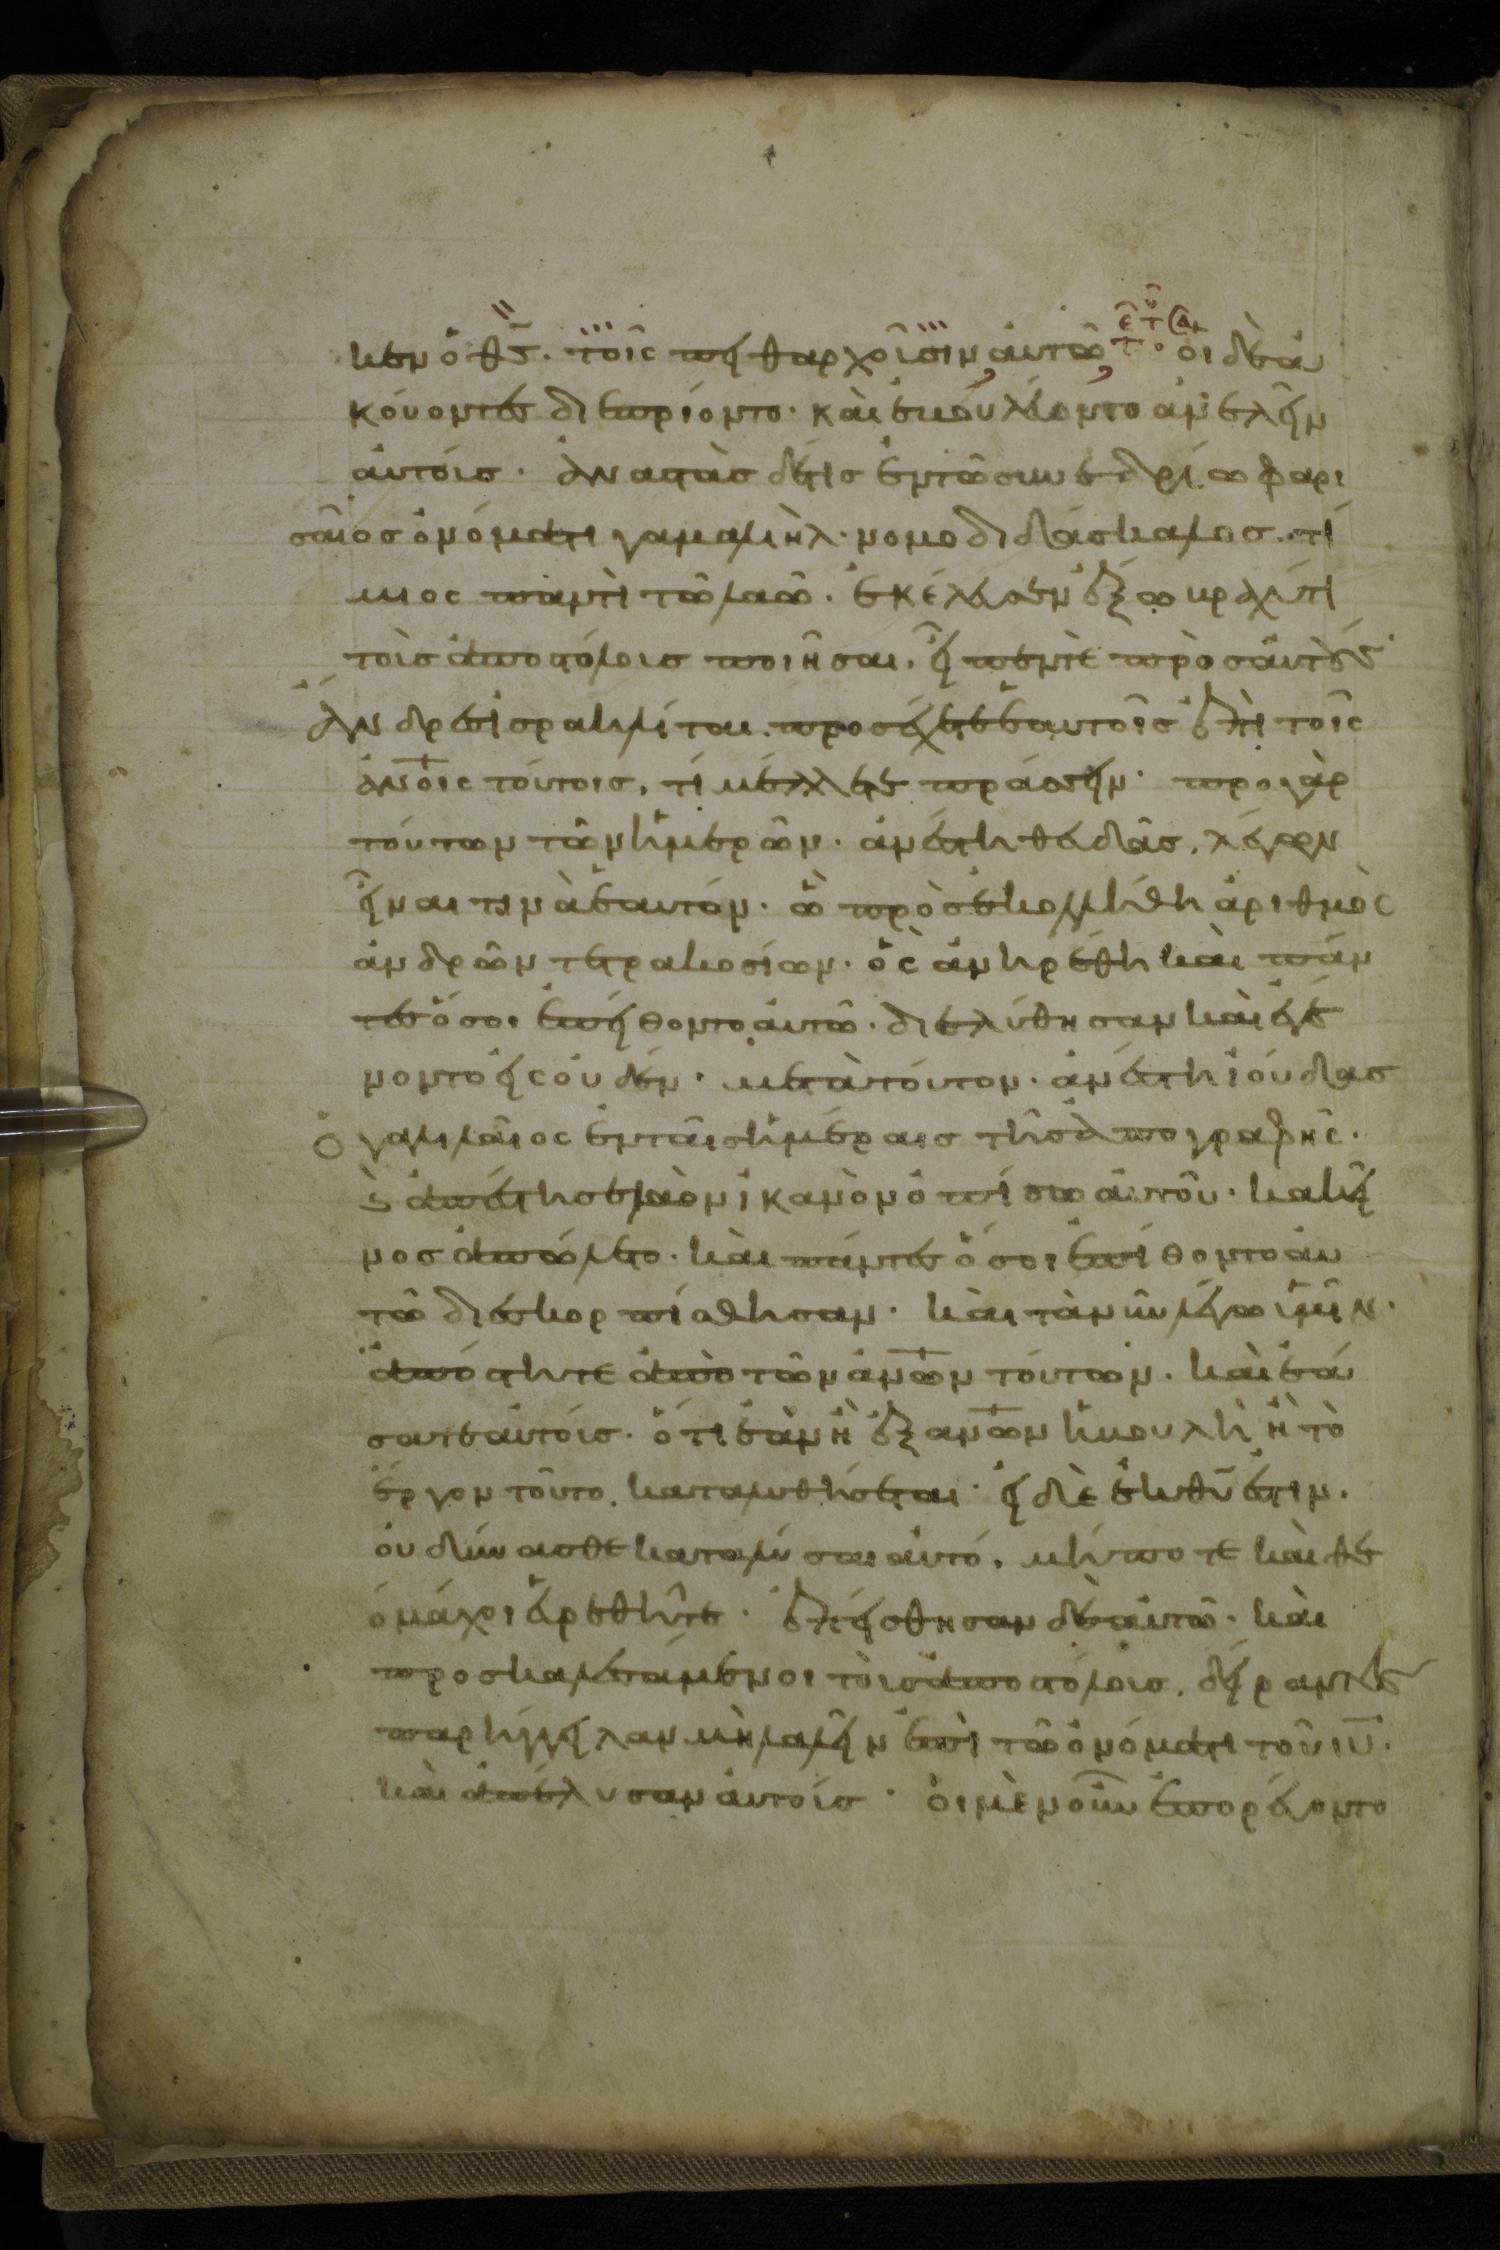 κεν ὁ θς̅. τοῖς πειθαρχοῖσιν αὐτῶ· οἱ δὲ ἀ
κούοντες διεπρίοντο· καὶ ἐβουλέυοντο ἀνελεῖν
ἀυτόυσ· ἀναστὰσ δέ τισ ἐν τῶ συνεδρίω φαρι
σαῖοσ ὀνόματι γαμαλιὴλ· νομοδιδάσκαλοσ· τί
μιος παντὶ τῶ λαῶ· ἐκέλευσεν ἔξω βραχύ τι
τοὺσ ἀποστόλουσ ποιῆσαι. εἶπεν τὲ πρὸσ αὐτούς·
ἄνδρες ἰσραηλίται. προσέχετε ἑαυτοῖσ ἐπὶ τοῖς
ἀνο̅ις τούτοισ, τί μέλλετε πράσσειν· προ γὰρ
τούτων τῶν ἡμερῶν· ἀνέστη θευδᾶσ, λέγων
εἶναι τινὰ ἑαυτόν· ὧ προσεκολλήθη ἀριθμὸς
ἀνδρῶν τετρακοσίων· ὃς ἀνηρέθη καὶ πάν
τες ὅσοι ἐπείθοντο αὐτῶ· διελύθησαν καὶ ἐγέ
νοντο εἰς οὐδέν· μετὰ τοῦτον· ἀνέστη ἰούδασ
ὁ γαλιλαῖος ἐν ταῖσ ἡμέραισ τῆσ ἀπογραφῆς·
καὶ ἀπέστησε λαὸν ἱκανὸν ὀπίσω αὐτοῦ· κακεῖ
νοσ ἀπώλετο· καὶ πάντες ὅσοι ἐπίθοντο αὐ
τῶ διεσκορπίσθησαν· καὶ τὰ νῦν λέγω ὑμῖν·
ἀπόστητε ἀπὸ τῶν ἀνω̅ν τούτων· καὶ ἐά
σατε αὐτούσ· ὅτι ἐὰν ἢ ἐξ ἀνω̅ν ἡ βουλὴ ἢ τὸ
ἔργον τοῦτο, καταλυθήσεται· εἰ δὲ ἐκ θυ̅ ἐστιν.
οὐ δύνασθε καταλύσαι αὐτό, μήποτε καὶ θε
ομάχοι εὑρεθῆτε· ἐπείσθησαν δὲ αὐτῶ· καὶ
προσκαλεσάμενοι τοὺσ ἀποστόλουσ, δείραντες
παρήγγειλαν μὴ λαλεῖν ἐπὶ τῶ ὀνόματι τοῦ ιυ̅·
καὶ ἀπέλυσαν αὐτούσ· οἱ μὲν οὖν ἐπορέυοντο